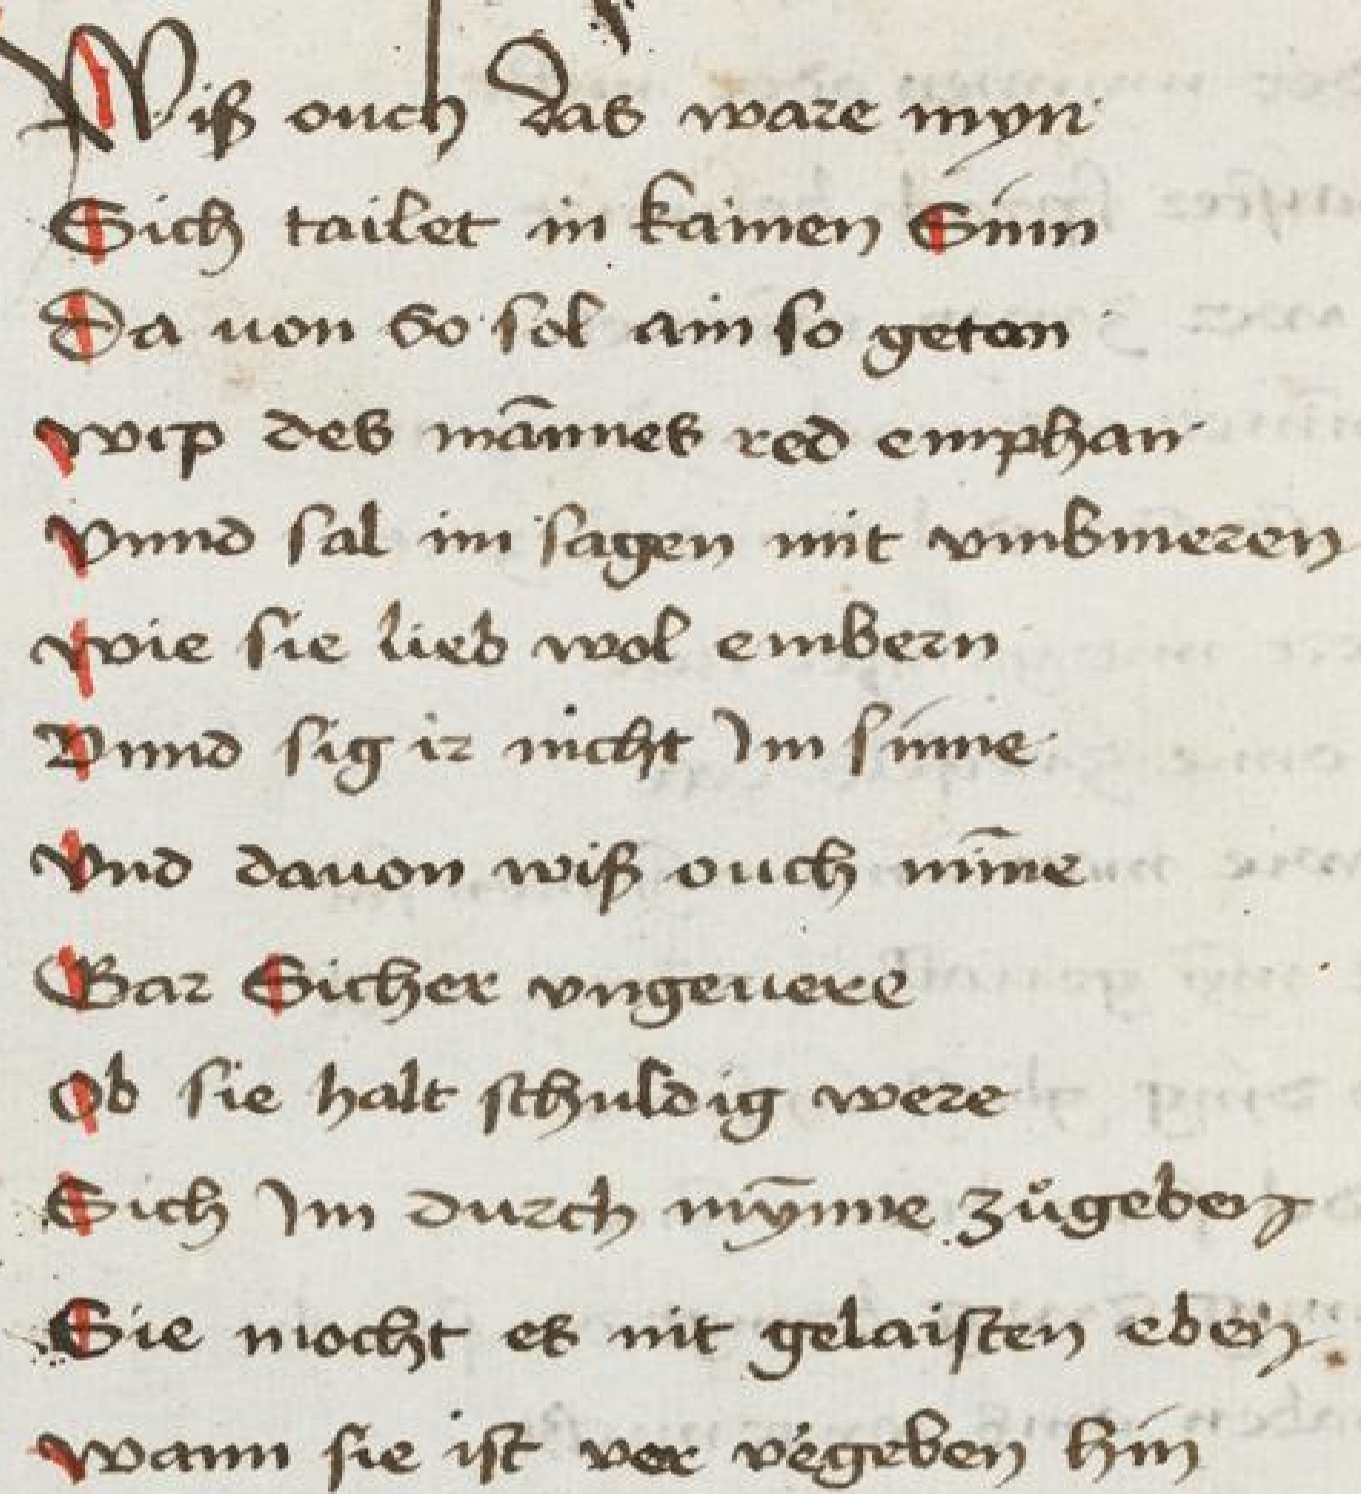 Wiß ouch das ware myn
Sich tailet in kainen Sinn
Da uon So sol ain so getan
wip des mānnes red emphan
Vnnd sal im sagen mit vnbmeren
wie sie lieb wol embern
Vnnd sig ir nicht Jm sinne
Vnd dauon wiß ouch mīne
Gar Sicher vngeuere
Ob sie halt schuldig were
Sich Jm durch mȳnne zůgeben
Sie mocht es nit gelaisten eben
wann sie ist ver v'geben hin